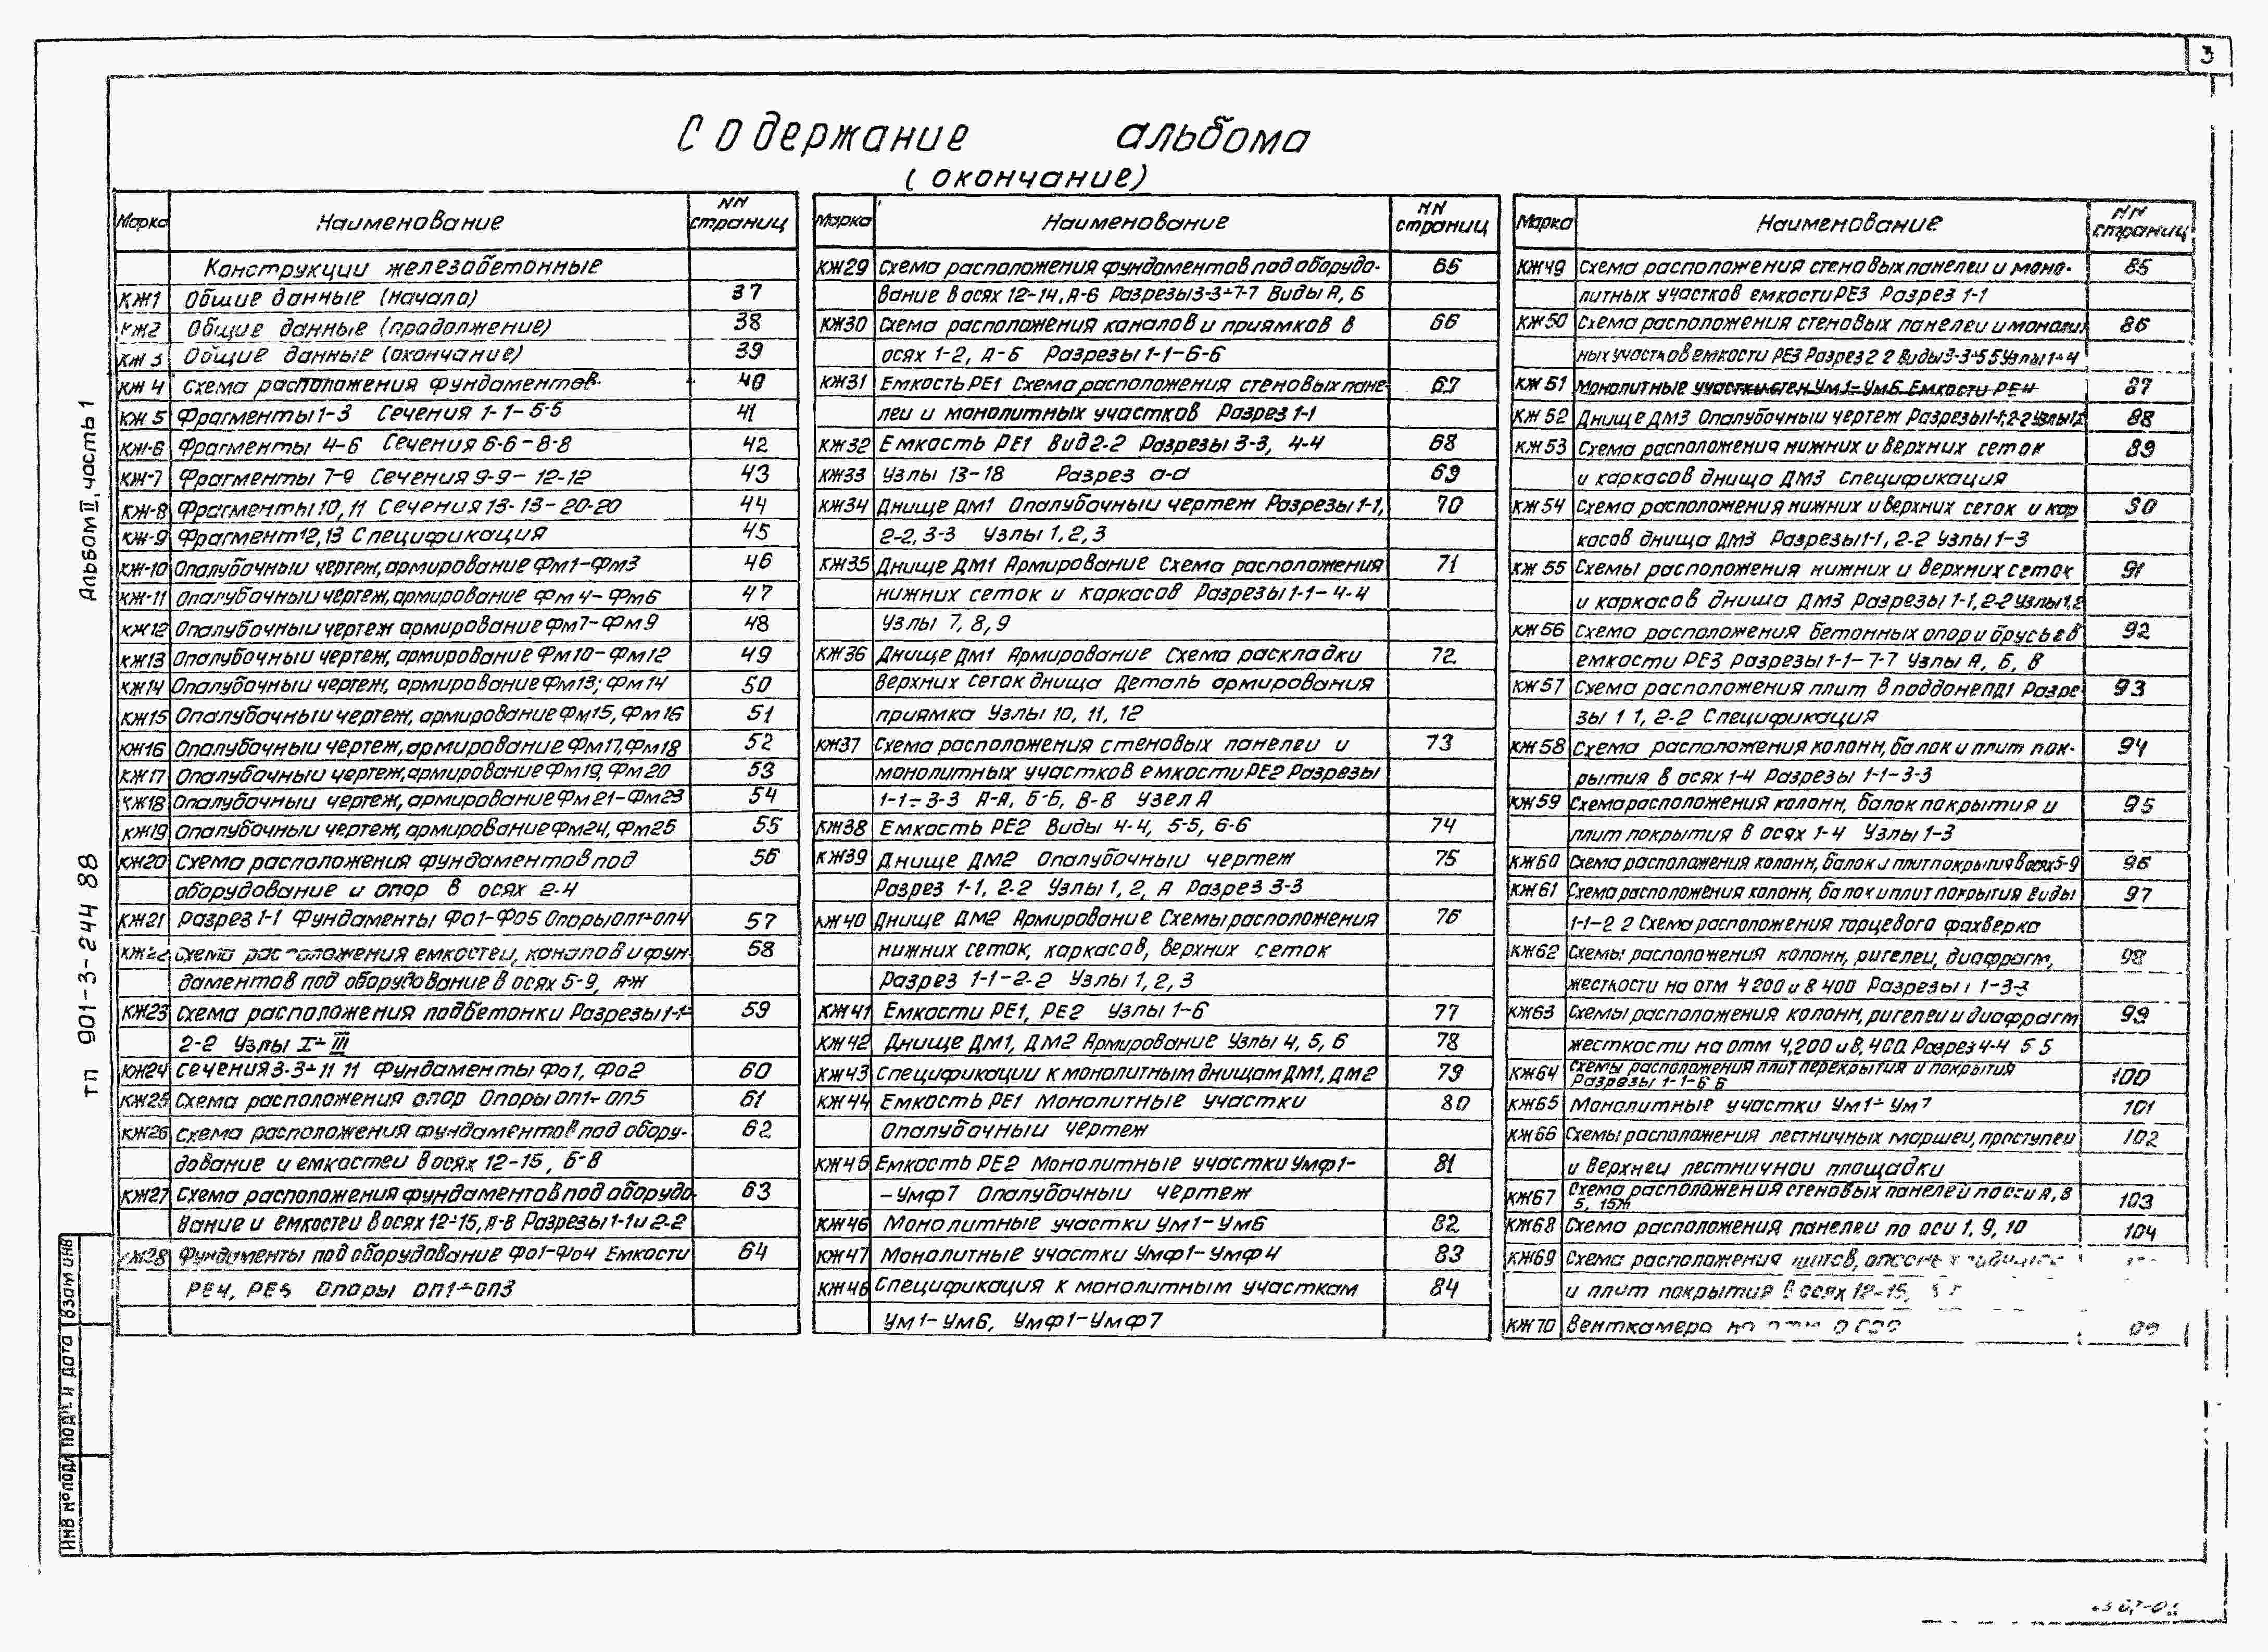 3
Содержание альбома
(окончание)
Марка Наименование NN страниц
Конструкции железобетонные
КЖ1 Общие данные (начало) 37
КЖ2 Общие данные (продолжение) 38
КЖ3 Общие данные (окончание) 39
КЖ4 Схема расположения фундаментов 40
КЖ5 Фрагменты 1-3 Сечения 1-1-5-5 41
КЖ-6 Фрагменты 4-6 Сечения 6-6-8-8 42
КЖ-7 Фрагменты 7-9 Сечения 9-9-12-12 43
КЖ-8 Фрагменты 10, 11 Сечения 13-13-20-20 44
КЖ-9 Фрагмент 12,13 Спецификация 45
КЖ-10 Опалубочный чертеж, армирование Фм1-Фм3 46
КЖ-11 Опалубочный чертеж, армирование Фм4-Фм6 47
КЖ12 Опалубочный чертеж армирование Фм7-Фм9 48
КЖ13 Опалубочный чертеж, армирование Фм10-Фм12 49
КЖ14 Опалубочный чертеж, армирование Фм13; Фм14 50
КЖ15 Опалубочный чертеж, армирование Фм15, Фм16 51
КЖ16 Опалубочный чертеж, армирование Фм17, Фм18 52
КЖ17 Опалубочный чертеж, армирование Фм19, Фм20 53
КЖ18 Опалубочный чертеж, армирование Фм21-Фм23 54
КЖ19 Опалубочный чертеж, армирование Фм24, Фм25 55
КЖ20 Схема расположения фундаментов под 56
оборудование и опор в осях 2-4
КЖ21 Разрез 1-1 Фундаменты Фо1-Фо5 Опоры оп1÷оп4 57
КЖ22 Схема расположения емкостей, каналов и фун- 58
даментов под оборудование в осях 5-9, А-Ж
КЖ23 Схема расположения подбетонки Разрезы 1-1÷ 59
2-2 Узлы I÷III
КЖ24 Сечения 3-3÷11 11 Фундаменты Фо1, Фо2 60
КЖ25 Схема расположения опор Опоры оп1÷оп5 61
КЖ26 Схема расположения фундаментов под обору- 62
дование и емкостей в осях 12-15, Б-В
КЖ27 Схема расположения фундаментов под оборудо- 63
вание и емкостей в осях 12÷15, А-В Разрезы 1-1 и 2-2
КЖ28 Фундаменты под оборудование Фо1-Фо4 Емкости 64
РЕ4, РЕ5 Опоры оп1÷оп3
Марка Наименование NN страниц
КЖ29 Схема расположения фундаментов под оборудо- 65
вание в осях 12-14, А-Б Разрезы 3-3÷7-7 Виды А, Б
КЖ30 Схема расположения каналов и приямков в 66
осях 1-2, А-Б Разрезы 1-1-6-6
КЖ31 Емкость РЕ1 Схема расположения стеновых пане- 67
лей и монолитных участков Разрез 1-1
КЖ32 Емкость РЕ1 Вид 2-2 Разрезы 3-3, 4-4 68
КЖ33 Узлы 13-18 Разрез а-а 69
КЖ34 Днище ДМ1 Опалубочный чертеж Разрезы 1-1, 70
2-2, 3-3 Узлы 1, 2, 3
КЖ35 Днище ДМ1 Армирование Схема расположения 71
нижних сеток и каркасов Разрезы 1-1-4-4
Узлы 7, 8, 9
КЖ36 Днище ДМ1 Армирование Схема раскладки 72
верхних сеток днища Деталь армирования
приямка Узлы 10, 11, 12
КЖ37 Схема расположения стеновых панелей и 73
монолитных участков емкости РЕ2 Разрезы
1-1÷3-3 А-А, Б-Б, В-В Узел А
КЖ38 Емкость РЕ2 Виды 4-4, 5-5, 6-6 74
КЖ39 Днище ДМ2 Опалубочный чертеж 75
Разрез 1-1, 2-2 Узлы 1, 2, А Разрез 3-3
КЖ40 Днище ДМ2 Армирование Схемы расположения 76
нижних сеток, каркасов, верхних сеток
Разрез 1-1-2-2 Узлы 1, 2, 3
КЖ41 Емкости РЕ1, РЕ2 Узлы 1-6 77
КЖ42 Днище ДМ1, ДМ2 Армирование Узлы 4, 5, 6 78
КЖ43 Спецификации к монолитным днищам ДМ1, ДМ2 79
КЖ44 Емкость РЕ1 Монолитные участки 80
Опалубочный чертеж
КЖ45 Емкость РЕ2 Монолитные участки Умф1- 81
-Умф7 Опалубочный чертеж
КЖ46 Монолитные участки Ум1-Ум6 82
КЖ47 Монолитные участки Умф1-Умф4 83
КЖ48 Спецификация к монолитным участкам 84
Ум1-Ум6, Умф1-Умф7
Марка Наименование NN страниц
КЖ49 Схема расположения стеновых панелей и моно- 85
литных участков емкости РЕ3 Разрез 1-1
КЖ50 Схема расположения стеновых панелей и монолит 86
ных участков емкости РЕ3 Разрез 2 2 Виды 3-3÷5 5 Узлы 1÷4
КЖ51 Монолитные участки стен Ум1-Ум6 Емкости РЕ4 87
КЖ52 Днище ДМ3 Опалубочный чертеж Разрезы 1-1, 2-2 Узлы 1,2 88
КЖ53 Схема расположения нижних и верхних сеток 89
и каркасов днища ДМ3 Спецификация
КЖ54 Схема расположения нижних и верхних сеток и кар 90
касов днища ДМ3 Разрезы 1-1, 2-2 Узлы 1-3
КЖ55 Схемы расположения нижних и верхних сеток 91
и каркасов днища ДМ3 Разрезы 1-1, 2-2 Узлы 1,2
КЖ56 Схема расположения бетонных опор и брусьев в 92
емкости РЕ3 Разрезы 1-1-7-7 Узлы А, Б, В
КЖ57 Схема расположения плит в поддоне ПД1 Разре 93
зы 1 1, 2-2 Спецификация
КЖ58 Схема расположения колонн, балок и плит пок- 94
рытия в осях 1-4 Разрезы 1-1-3-3
КЖ59 Схема расположения колонн, балок покрытия и 95
плит покрытия в осях 1-4 Узлы 1-3
КЖ60 Схема расположения колонн, балок и плит покрытия в осях 5-9 96
КЖ61 Схема расположения колонн, балок и плит покрытия Виды 97
1-1-2 2 Схема расположения торцевого фахверка
КЖ62 Схемы расположения колонн, ригелей, диафрагм, 98
жесткости на отм 4 200 и 8 400 Разрезы 1 1-3-3
КЖ63 Схемы расположения колонн, ригелей и диафрагм 99
жесткости на отм 4,200 и 8,400 Разрез 4-4 5 5
КЖ64 Схемы расположения плит перекрытия и покрытия
Разрезы 1-1-6 6 100
КЖ65 Монолитные участки Ум1÷Ум7 101
КЖ66 Схемы расположения лестничных маршей, проступей 102
и верхней лестничной площадки
КЖ67 Схема расположения стеновых панелей по оси А, В
5, 15Ж 103
КЖ68 Схема расположения панелей по оси 1, 9, 10 104
КЖ69 Схема расположения щитов,
и плит покрытия в осях 12-15,
КЖ70 Венткамера на отм
Альбом II, часть 1
ТП 901-3-244 88
Взам инв
Подп. и дата
Инв № подл